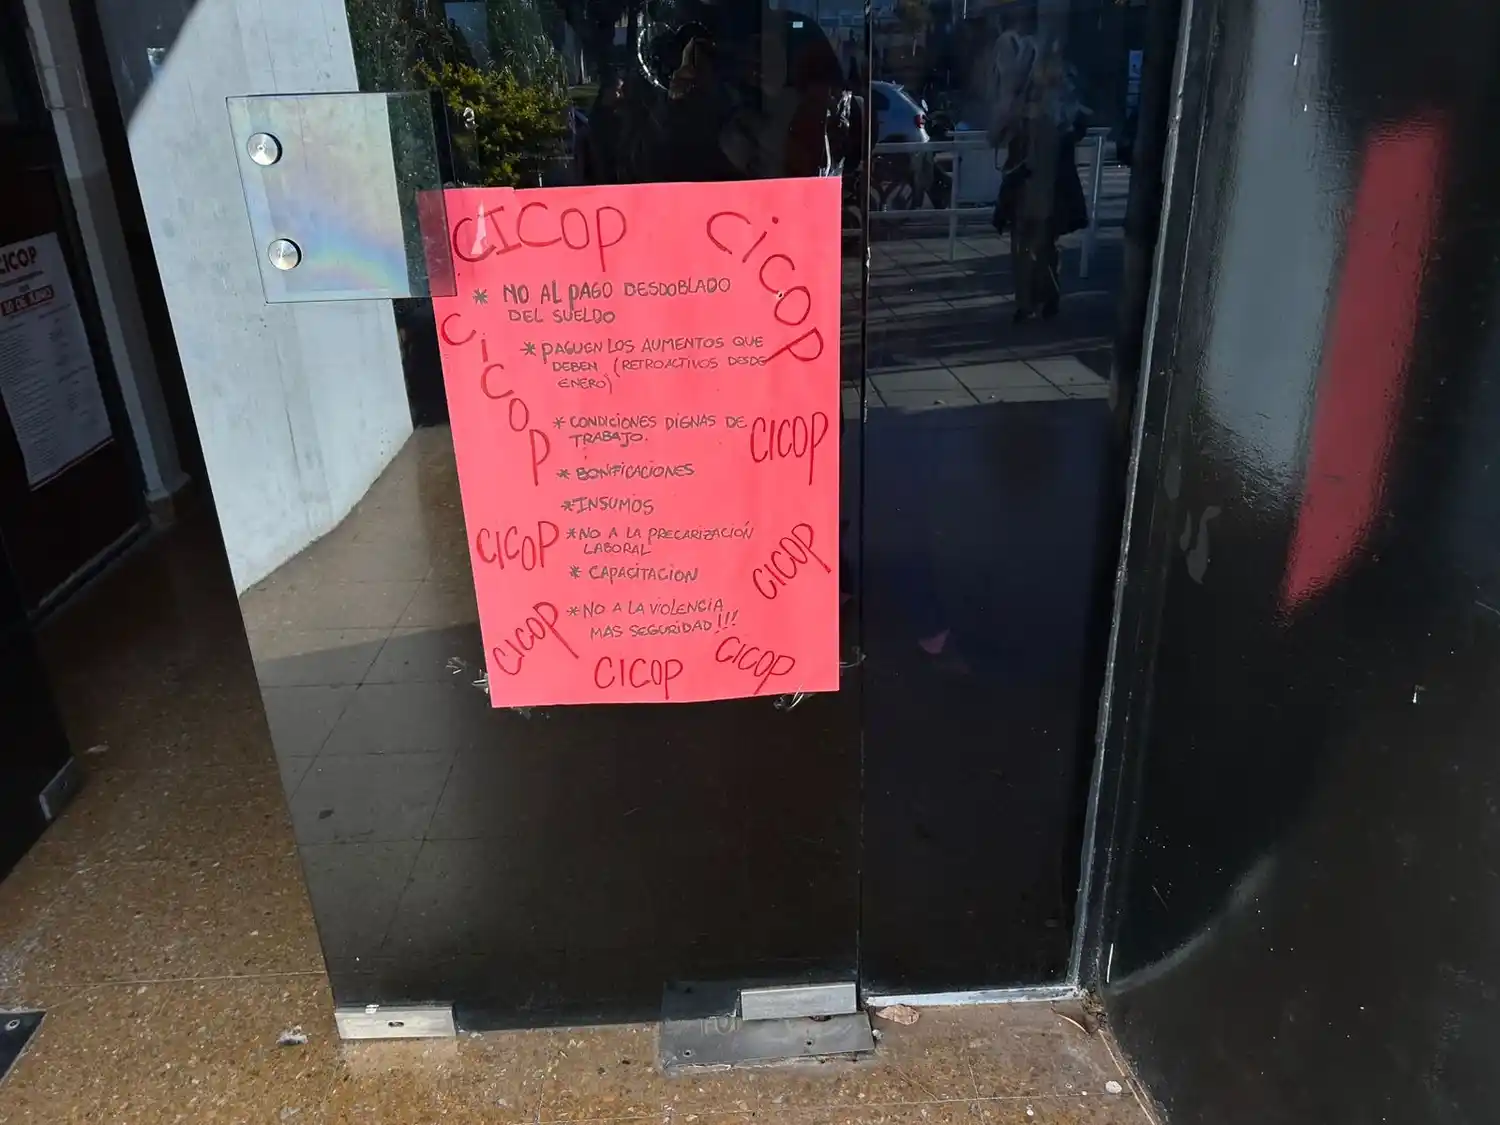 CICOP
CICOP
* NO AL PAGO DESDOBLADO
DEL SUELDO
CICOP
* PAGUEN LOS AUMENTOS QUE
DEBEN (RETROACTIVOS DESDE
ENERO)
* CONDICIONES DIGNAS DE
TRABAJO.
CICOP
* BONIFICACIONES
* INSUMOS
CICOP
* NO A LA PRECARIZACIÓN
LABORAL
CICOP
* CAPACITACION
* NO A LA VIOLENCIA
MAS SEGURIDAD!!!
CICOP
CICOP
CICOP
CICOP